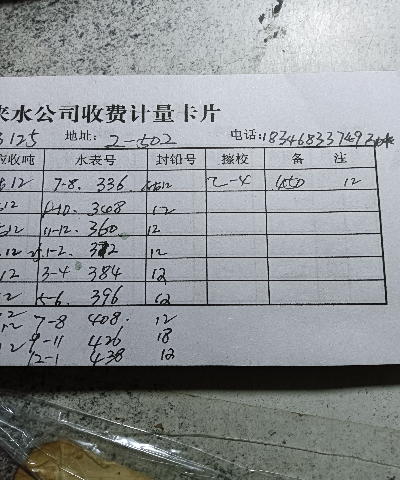 来水公司收费计量卡片
3125 地址: 2-502 电话: 18346833749
应收吨 水表号 封铅号 擦校 备 注
12 7-8. 336 12 2-4 12
12 348 12
12 11-12. 360 12
12 1-2. 372 12
12 3-4 384 12
12 5-6. 396 12
12 7-8 408. 12
12 9-11 426 18
12-1 438 12